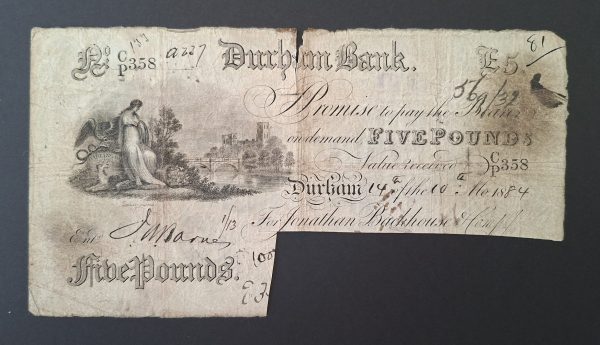 No C/P358 a227 Durham Bank. £5. 81
137
56
I Promise to pay the Bearer
on demand, FIVE POUNDS
Value received C/P358
Durham 14th of the 10th Mo 1884
For Jonathan Backhouse & Comp
Ent 1/13
Five Pounds.